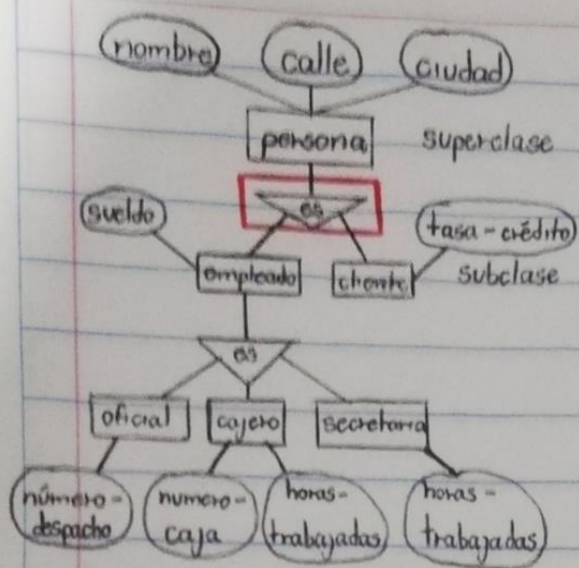 nombre calle ciudad
persona superclase
es
sueldo tasa-crédito
empleado cliente subclase
es
oficial cajero secretaria
número- numero- horas- horas-
despacho caja trabajadas trabajadas